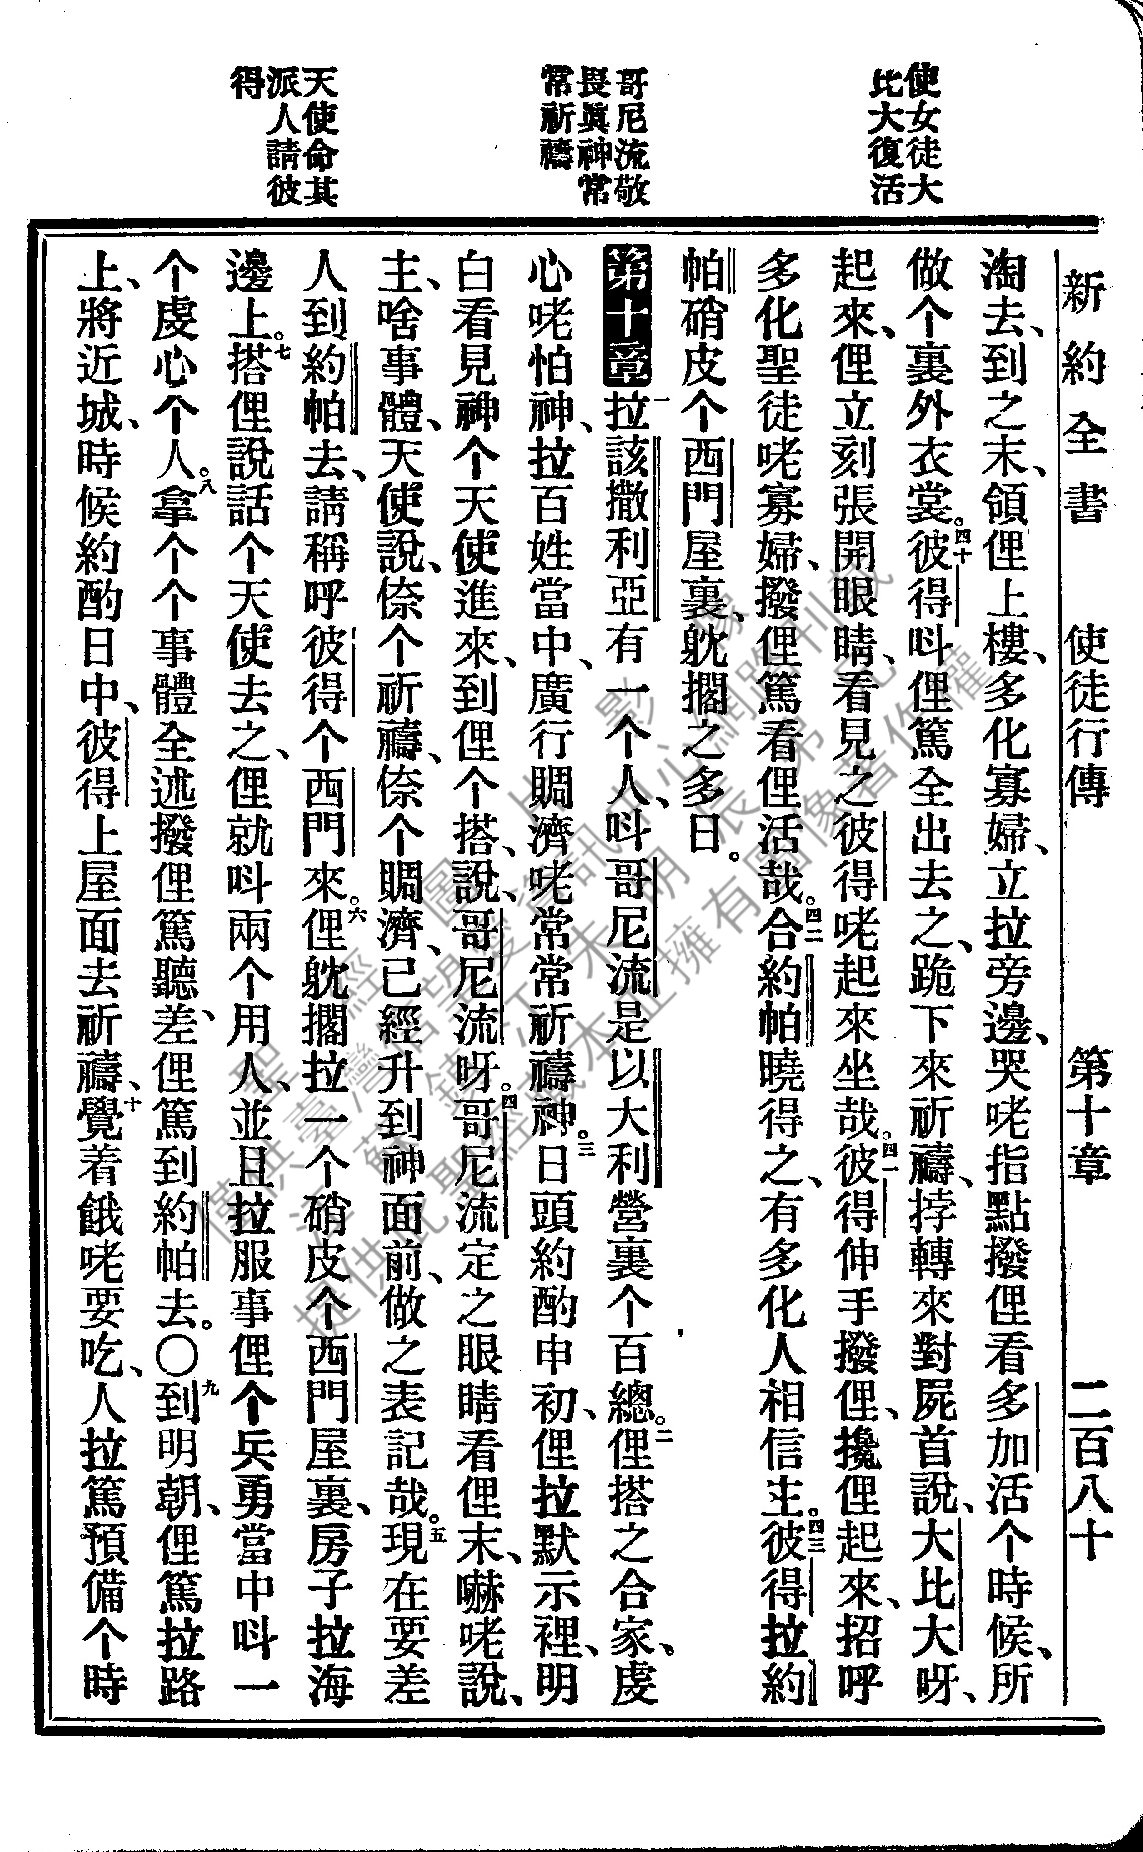 新約全書　使徒行傳　第十章　二百八十
使女徒大
比大復活
哥尼流敬
畏眞神常
常祈禱
天使命其
派人請彼
得
淘去、到之末、領俚上樓、多化寡婦、立拉旁邊、哭咾指點撥俚看多加活个時候、所
做个裏外衣裳。四十彼得呌俚篤全出去之、跪下來祈禱、挬轉來對屍首說、大比大呀、
起來、俚立刻張開眼睛、看見之彼得咾起來坐哉。四一彼得伸手撥俚、攙俚起來、招呼
多化聖徒咾寡婦、撥俚篤看俚活哉。四二合約帕曉得之、有多化人相信主。四三彼得拉約
帕硝皮个西門屋裏、躭擱之多日。
第十章一拉該撒利亞有一个人、呌哥尼流是以大利營裏个百總。二俚搭之合家、虔
心咾怕神、拉百姓當中、廣行賙濟咾常常祈禱神。三日頭約酌申初、俚拉默示裡、明
白看見神个天使進來、到俚个搭、說、哥尼流呀。四哥尼流定之眼睛看俚末、嚇咾說、
主、啥事體、天使說、倷个祈禱、倷个賙濟、已經升到神面前、做之表記哉。五現在要差
人到約帕去、請稱呼彼得个西門來。六俚躭擱拉一个硝皮个西門屋裏、房子拉海
邊上。七搭俚說話个天使去之、俚就呌兩个用人、並且拉服事俚个兵勇當中呌一
个虔心个人。八拿个个事體全述撥俚篤聽、差俚篤到約帕去。〇九到明朝、俚篤拉路
上、將近城、時候約酌日中、彼得上屋面去祈禱、十覺着餓咾要吃、人拉篤預備个時